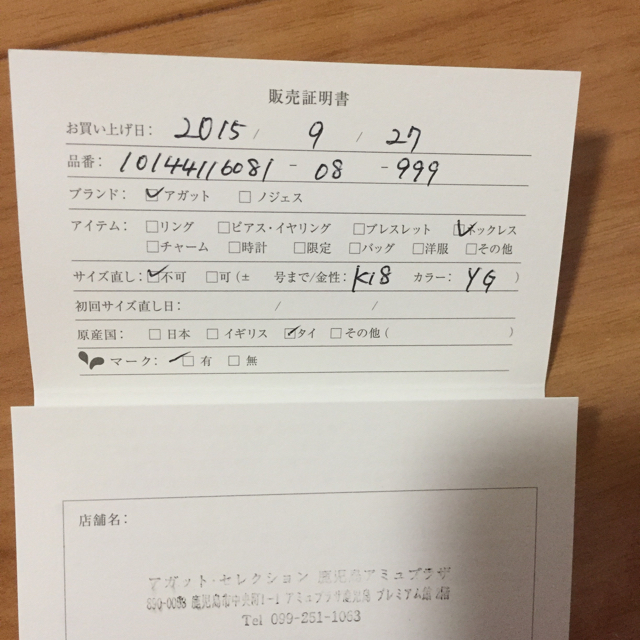 販売証明書
お買い上げ日: 2015 / 9 / 27
品番: 10144116081 - 08 - 999
ブランド: ☑アガット □ノジェス
アイテム: □リング □ピアス・イヤリング □ブレスレット ☑ネックレス
□チャーム □時計 □限定 □バッグ □洋服 □その他
サイズ直し: ☑不可 □可(± 号まで/金性: K18 カラー: YG )
初回サイズ直し日: / /
原産国: □日本 □イギリス ☑タイ □その他( )
マーク: ☑有 □無
店舗名:
アガット・セレクション 鹿児島アミュプラザ
890-0053 鹿児島市中央町1-1 アミュプラザ鹿児島 プレミアム館 2階
Tel 099-251-1063